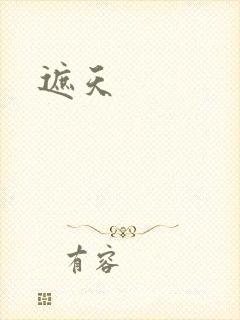 遮天
有容